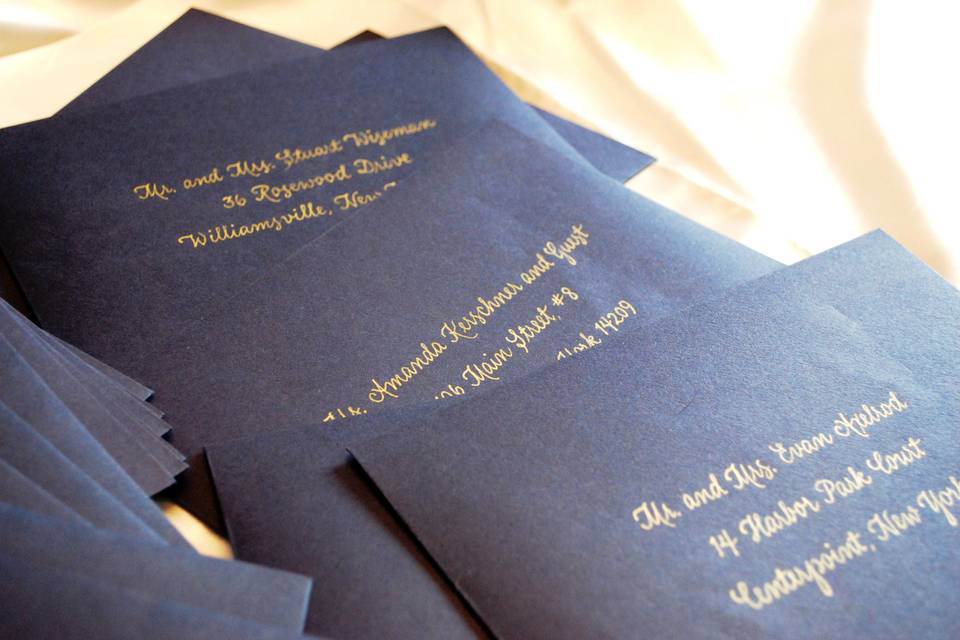 Mr. and Mrs. Stuart Wizeman
36 Rosewood Drive
Williamsville, New
Amanda Kerschner and Guest
Main Street, #8
York 14209
Mr. and Mrs. Evan Axelrod
14 Harbor Park Court
Centerpoint, New York